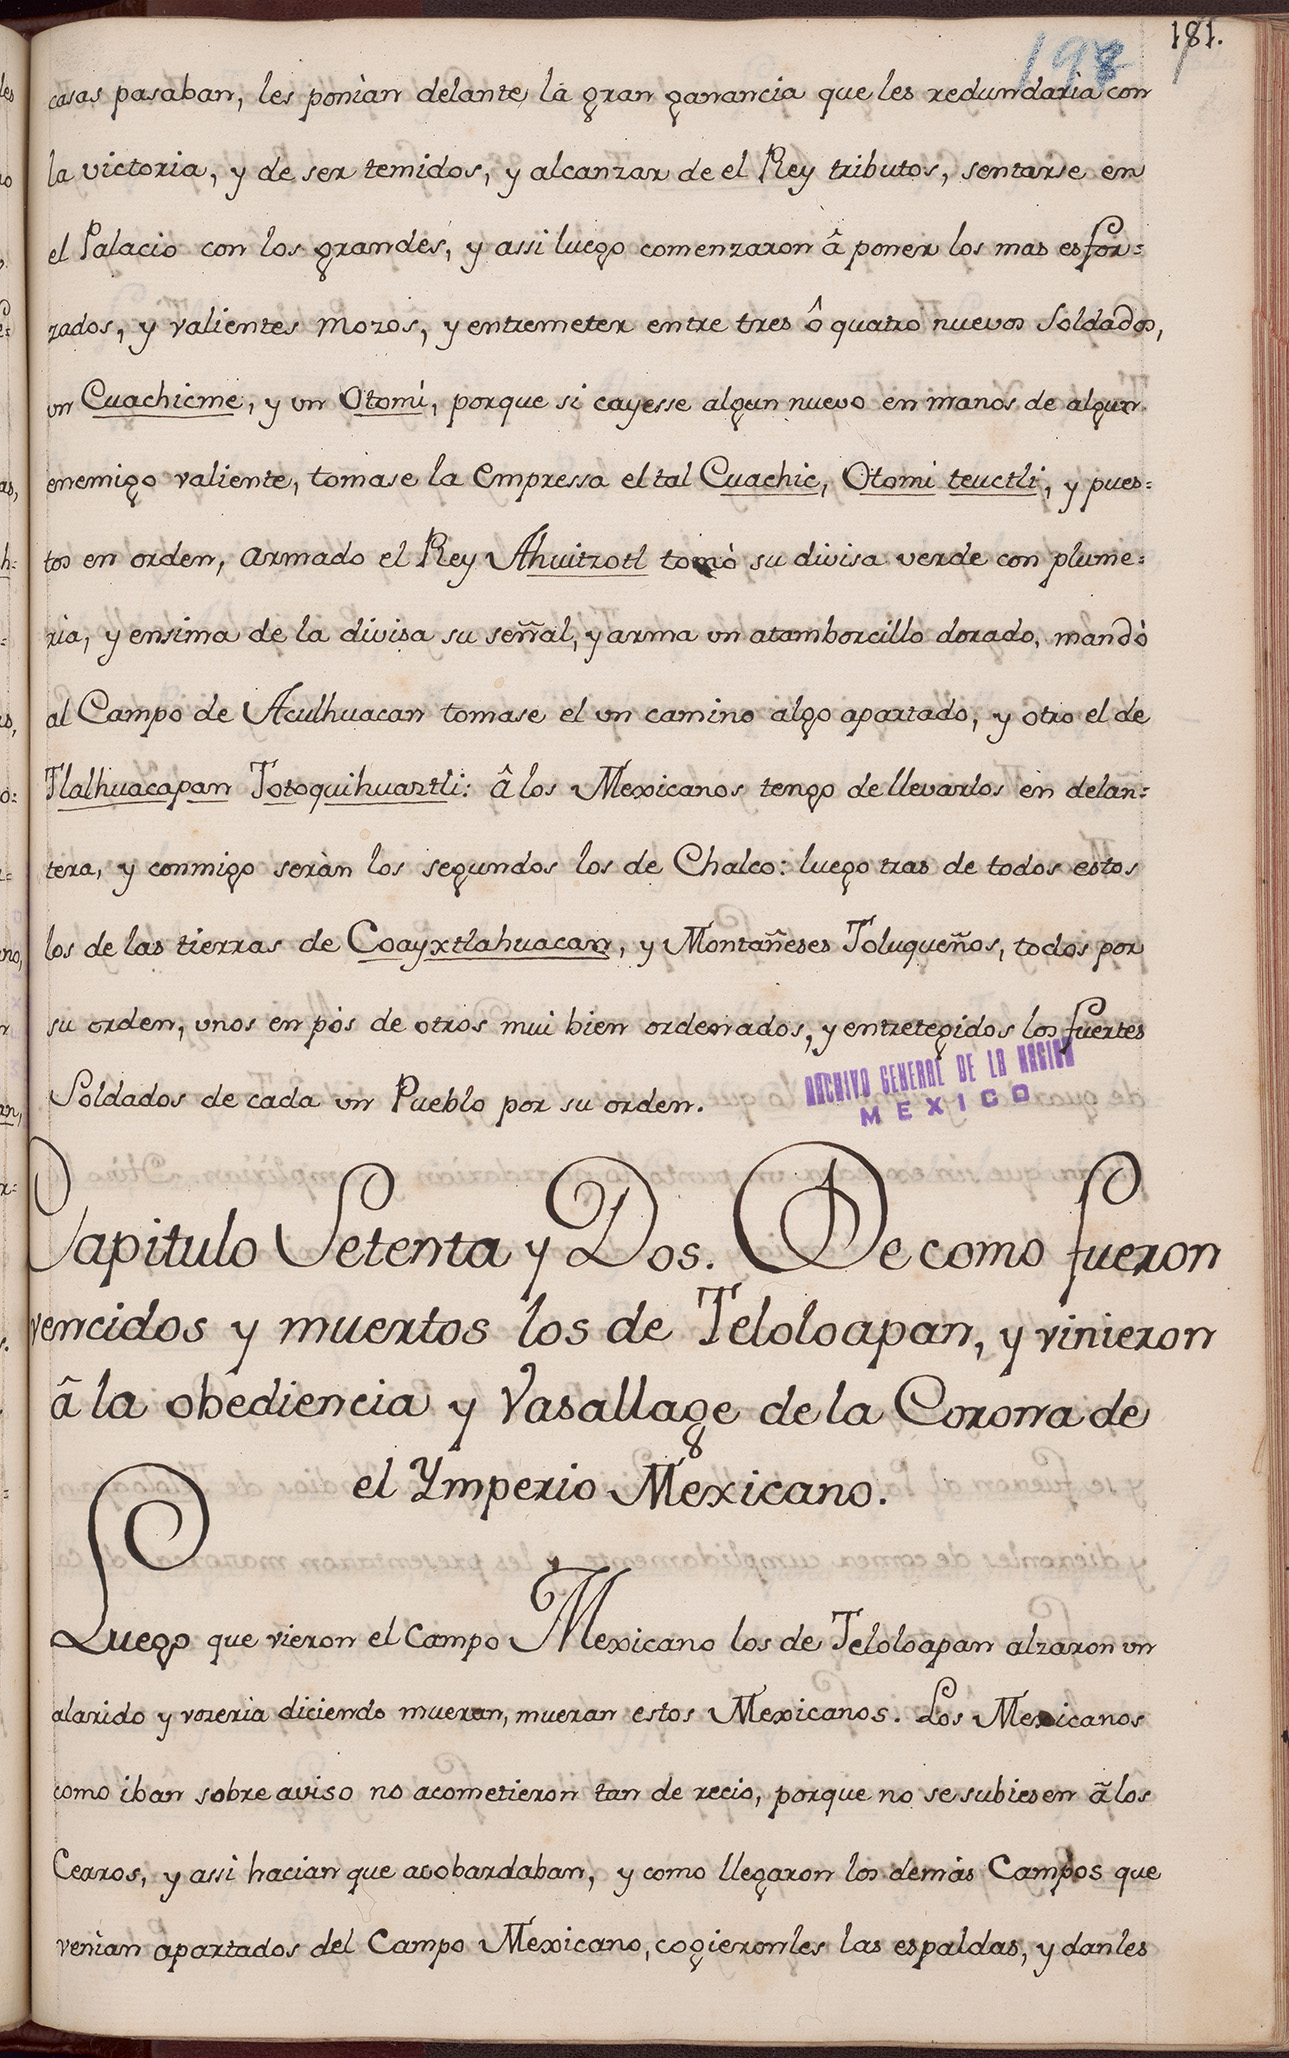 181.
198
casas pasaban, les ponìan delante la gran ganancia que les redundarìa con
la victoria, y de ser temidos, y alcanzar de el Rey tributos, sentarse en
el Palacio con los grandes, y assi luego comenzaron â poner los mas esfor=
zados, y valientes mozos, y entremeter entre tres ô quatro nuevos Soldados,
un Cuachicme, y un Otomì, porque si cayesse algun nuevo en manos de algun
enemigo valiente, tomase la empressa el tal Cuachic, Otomì teuctli, y pues=
tos en orden, armado el Rey Ahuitzotl tomò su divisa verde con plume=
rìa, y ensima de la divisa su señal, y arma un atamborcillo dorado, mandò
al Campo de Aculhuacan tomase el un camino algo apartado, y otro el de
Tlalhuacapan Totoquihuaztli: â los Mexicanos tengo de llevarlos en delan=
tera, y conmigo seràn los segundos los de Chalco: luego tras de todos estos
los de las tierras de Coayxtlahuacan, y Montañeses Toluqueños, todos por
su orden, unos en pòs de otros mui bien ordenados, y entretegidos los fuertes
Soldados de cada un Pueblo por su orden.
ARCHIVO GENERAL DE LA NACION
MEXICO
Capitulo Setenta y Dos. De como fueron
vencidos y muertos los de Teloloapan, y vinieron
â la obediencia y Vasallage de la Corona de
el Ymperio Mexicano.
Luego que vieron el Campo Mexicano los de Teloloapan alzaron un
alarido y vozerìa diciendo mueran, mueran estos Mexicanos. Los Mexicanos
como iban sobre aviso no acometieron tan de recio, porque no se subiesen â los
Cerros, y assi hacian que acobardaban, y como llegaron los demàs Campos que
venìan apartados del Campo Mexicano, cogieronles las espaldas, y danles